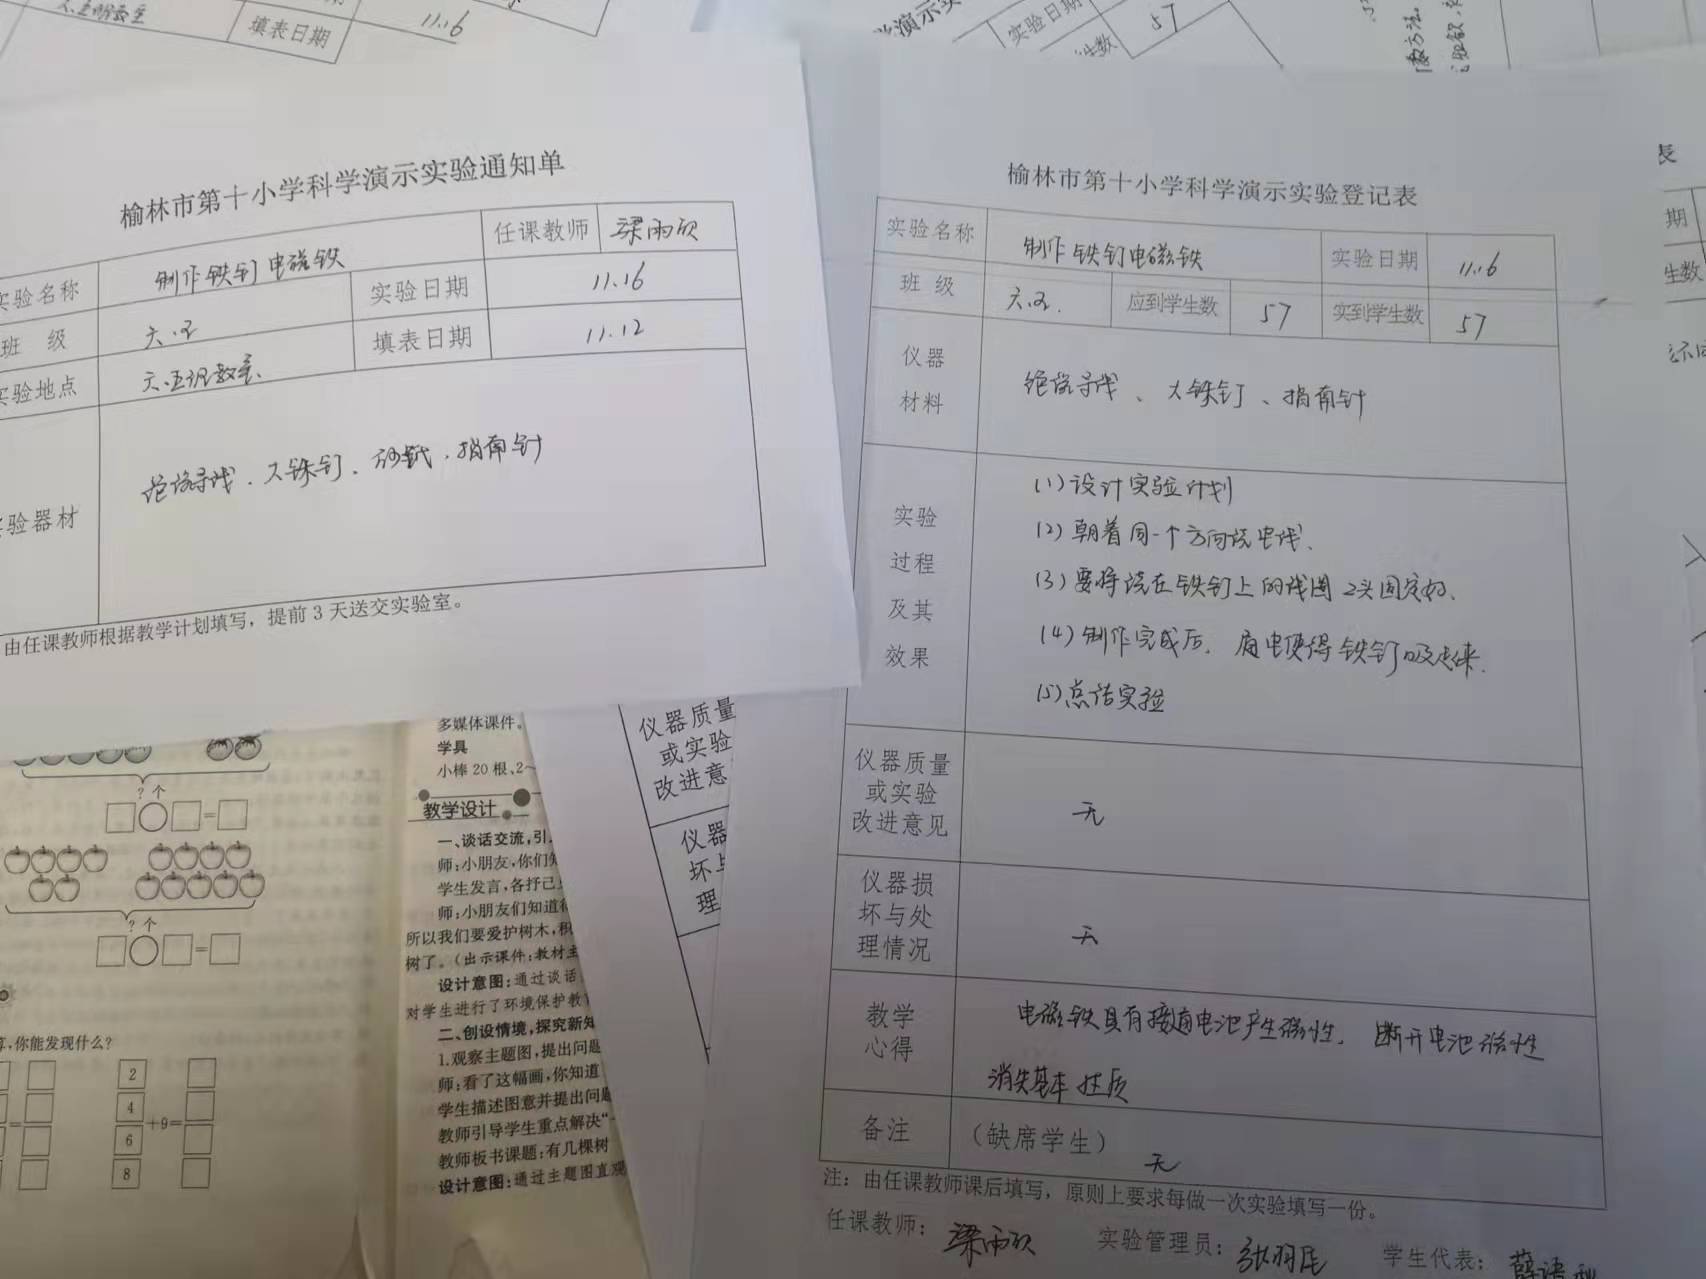 填表日期
11.16
实验日期
57
榆林市第十小学科学演示实验通知单
实验名称 制作铁钉电磁铁 任课教师 梁雨欣
班 级 六.五 实验日期 11.16
实验地点 六.五班教室 填表日期 11.12
验器材 绝缘导线、大铁钉、砂纸、指南针
由任课教师根据教学计划填写，提前 3 天送交实验室。
榆林市第十小学科学演示实验登记表
实验名称 制作铁钉电磁铁 实验日期 11.16
班 级 六.五. 应到学生数 57 实到学生数 57
仪器
材料
绝缘导线、大铁钉、指南针
实验
过程
及其
效果
(1)设计实验计划
(2)朝着同一个方向绕电线.
(3)要将绕在铁钉上的线圈2头固定好.
(4)制作完成后. 电使得铁钉吸起来.
(5)总结实验
仪器质量
或实验
改进意见
无
仪器损
坏与处
理情况
无
教学
心得
电磁铁具有接通电池产生磁性. 断开电池磁性
消失基本性质
备注 (缺席学生) 无
注：由任课教师课后填写，原则上要求每做一次实验填写一份。
任课教师： 梁雨欣 实验管理员： 学生代表：
仪器质量
或实验
改进意
仪器
理
期
生数
表
多媒体课件。
学具
小棒 20 根、2～
教学设计
一、谈话交流,引
师:小朋友,你们
学生发言,各抒己
师:小朋友们知道
所以我们要爱护树木,积
树了。(出示课件:教材主
设计意图:通过谈话
对学生进行了环境保护教
二、创设情境,探究新知
1.观察主题图,提出问题
师:看了这幅画,你知道
学生描述图意并提出问题
教师引导学生重点解决“
教师板书课题:有几棵树
设计意图:通过主题图直观
? 个
=
? 个
=
,你能发现什么?
=
2
4
6
8
+9=